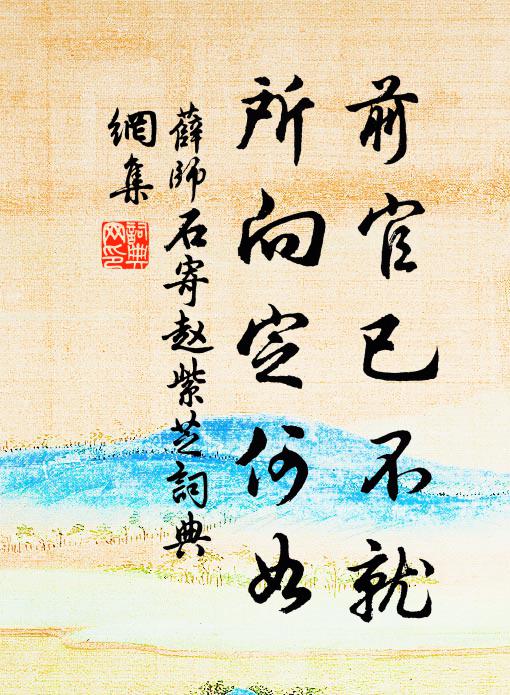 前官已不就
所向定何如
薛師石寄赵紫芝詞典
網集
詞典網印